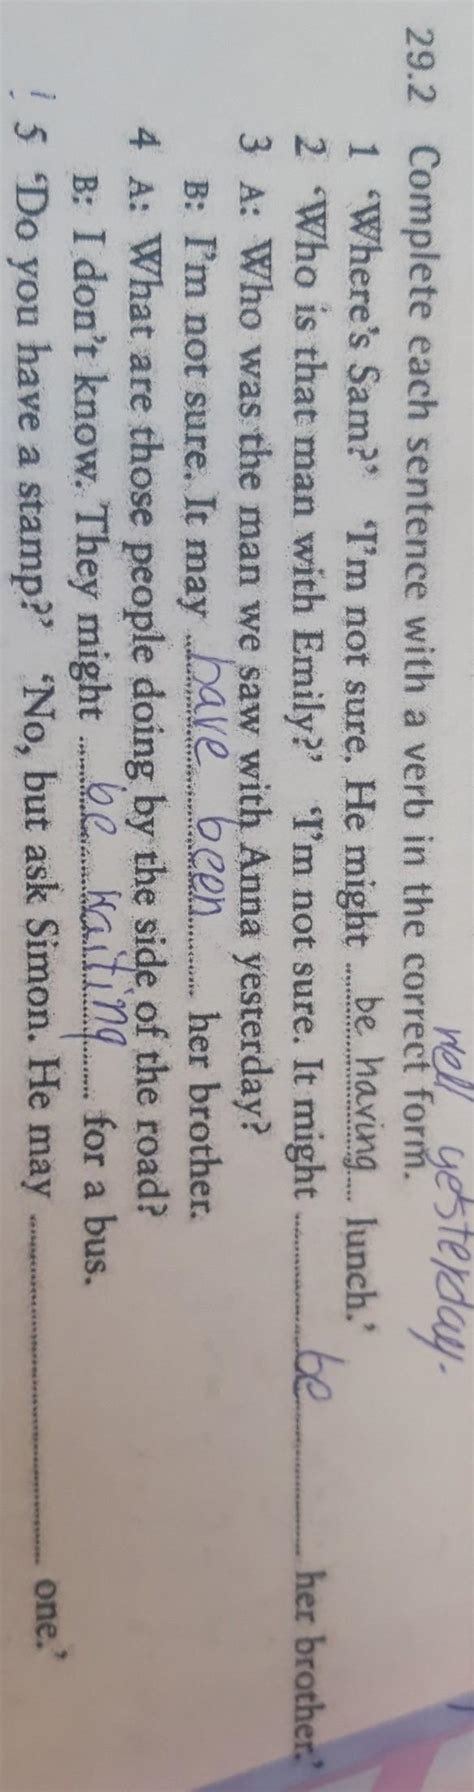 well yesterday.
29.2 Complete each sentence with a verb in the correct form.
1 ‘Where's Sam?’ ‘I'm not sure. He might be having lunch.’
2 ‘Who is that man with Emily?’ ‘I'm not sure. It might be her brother.’
3 A: Who was the man we saw with Anna yesterday?
B: I'm not sure. It may have been her brother.
4 A: What are those people doing by the side of the road?
B: I don't know. They might be waiting for a bus.
5 ‘Do you have a stamp?’ ‘No, but ask Simon. He may ............ one.’